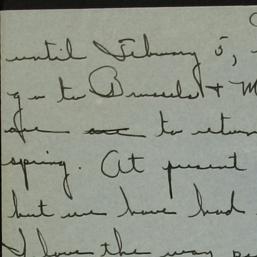 until February 5,
go to Brussels + M
are to return
spring. At present
but we have had
I love the way